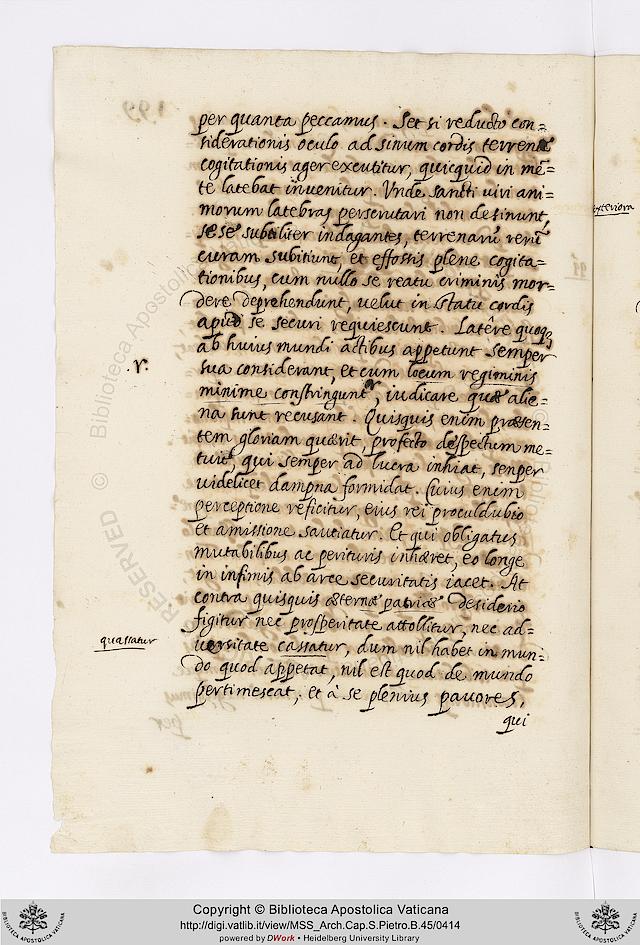 per quanta peccamus. Set si reducto con=
siderationis oculo ad sinum cordis terrenæ
cogitationis ager excutitur, quicquid in mē=
te latebat invenitur. Vnde sancti viri ani=
morum latebras perscrutari non desinunt,
se se subtiliter indagantes, terrenarū rerū
curam subitiunt, et effossis plene cogita=
tionibus, cum nullo se reatu criminis mor=
dere deprehendunt, velut in statu cordis
apud se securi requiescunt. Latêre quoq;
ab huius mundi actibus appetunt semper
r.
sua considerant, et cum locum regiminis
minime constringunt, iudicare quæ alie=
na sunt recusant. Quisquis enim præsen=
tem gloriam quærit, profecto despectum me=
tuit, qui semper ad lucra inhiat, senper
videlicet dampna formidat. Cuius enim
perceptione reficitur, eius rei proculdubio
et amissione sautiatur. Et qui obligatus
mutabilibus ac perituris inhæret, eo longe
in infimis ab arce securitatis iacet. At
contra quisquis æternæ patriæ desiderio
figitur nec prosperitate attollitur, nec ad=
quassatur
versitate cassatur, dum nil habet in mun=
do quod appetat, nil est quod de mundo
pertimescat, et à se plenius pavores,
qui
Copyright © Biblioteca Apostolica Vaticana
http://digi.vatlib.it/view/MSS_Arch.Cap.S.Pietro.B.45/0414
powered by DWork • Heidelberg University Library
BIBLIOTECA APOSTOLICA VATICANA
BIBLIOTECA APOSTOLICA VATICANA